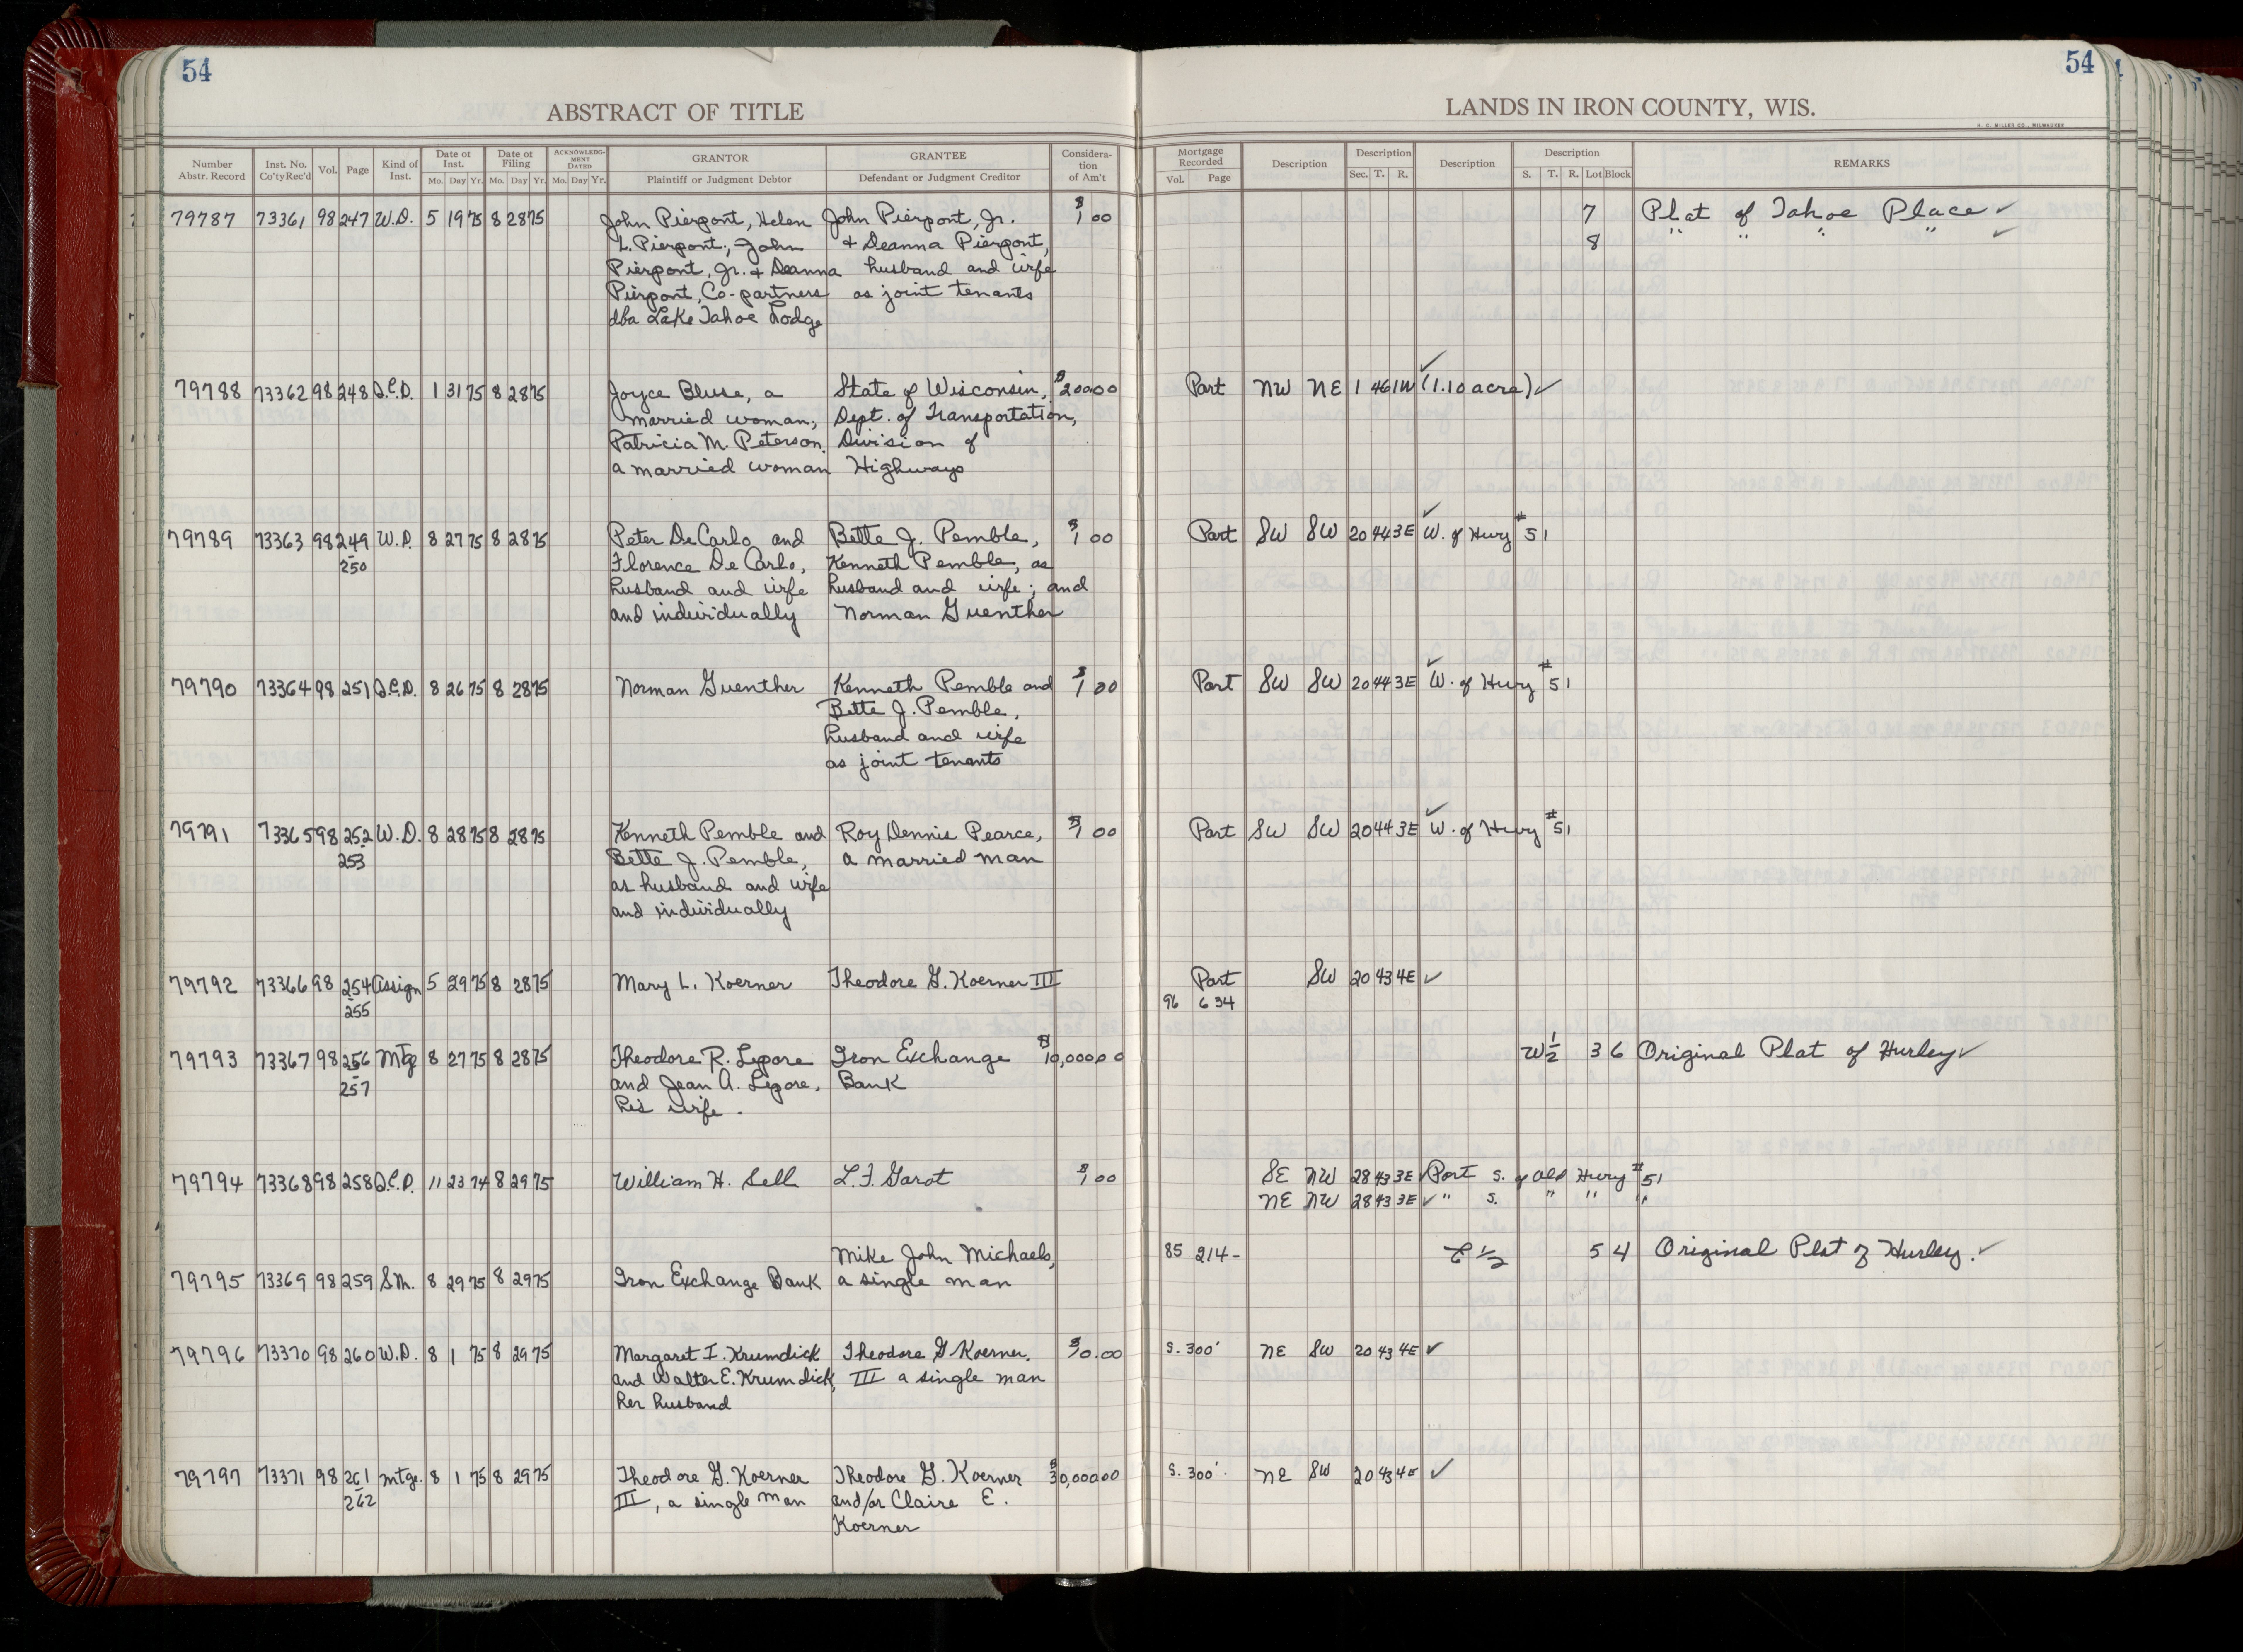 54
54
ABSTRACT OF TITLE
LANDS IN IRON COUNTY, WIS.
H. C. MILLER CO., MILWAUKEE
Number Abstr. Record | Inst. No. Co'ty Rec'd | Vol. | Page | Kind of Inst. | Date of Inst. Mo. Day Yr. | Date of Filing Mo. Day Yr. | ACKNOWLEDGMENT DATED Mo. Day Yr. | GRANTOR Plaintiff or Judgment Debtor | GRANTEE Defendant or Judgment Creditor | Consideration of Am't | Mortgage Recorded Vol. Page | Description | Description Sec. T. R. | Description | Description S. T. R. Lot Block | REMARKS
79787 73361 98 247 W.D. 5 19 75 8 28 75 John Pierpont, Helen John Pierpont, Jr. $1 00 7 Plat of Tahoe Place ✓
L. Pierpont; John & Deanna Pierpont, 8 " " " " ✓
Pierpont, Jr. & Deanna husband and wife
Pierpont, Co-partners as joint tenants
dba Lake Tahoe Lodge
79788 73362 98 248 Q.C.D. 1 31 75 8 28 75 Joyce Bluse, a State of Wisconsin, $200 00 Part NW NE 1 46 1W (1.10 acre) ✓
married woman; Dept. of Transportation,
Patricia M. Peterson, Division of
a married woman Highways
79789 73363 98 249 W.D. 8 27 75 8 28 75 Peter DeCarlo and Bette J. Pemble, $1 00 Part SW SW 20 44 3E W. of Hwy #51 ✓
250 Florence DeCarlo, Kenneth Pemble, as
husband and wife husband and wife; and
and individually Norman Guenther
79790 73364 98 251 Q.C.D. 8 26 75 8 28 75 Norman Guenther Kenneth Pemble and $1 00 Part SW SW 20 44 3E W. of Hwy #51 ✓
Bette J. Pemble,
husband and wife
as joint tenants
79791 73365 98 252 W.D. 8 28 75 8 28 75 Kenneth Pemble and Roy Dennis Pearce, $1 00 Part SW SW 20 44 3E W. of Hwy #51 ✓
253 Bette J. Pemble, a married man
as husband and wife
and individually
79792 73366 98 254 Assign 5 29 75 8 28 75 Mary L. Koerner Theodore G. Koerner III Part SW 20 43 4E ✓
255 96 634
79793 73367 98 256 Mtg 8 27 75 8 28 75 Theodore R. Lepore Iron Exchange $10,000 00 W 1/2 3 6 Original Plat of Hurley ✓
257 and Jean A. Lepore, Bank
his wife.
79794 73368 98 258 Q.C.D. 11 23 74 8 29 75 William H. Sell L.F. Garot $1 00 SE NW 28 43 3E ✓ Part S. of old Hwy #51
NE NW 28 43 3E ✓ " S. " " "
Mike John Michaels, 85 214 - E 1/2 5 4 Original Plat of Hurley. ✓
79795 73369 98 259 S.M. 8 29 75 8 29 75 Iron Exchange Bank a single man
79796 73370 98 260 W.D. 8 1 75 8 29 75 Margaret I. Krumdick Theodore G Koerner, S. 300' NE SW 20 43 4E ✓
and Walter E. Krumdick, III a single man
her husband
79797 73371 98 261 Mtge. 8 1 75 8 29 75 Theodore G. Koerner Theodore G. Koerner $30,000 00 S. 300'. NE SW 20 43 4E ✓
262 III, a single man and/or Claire E.
Koerner